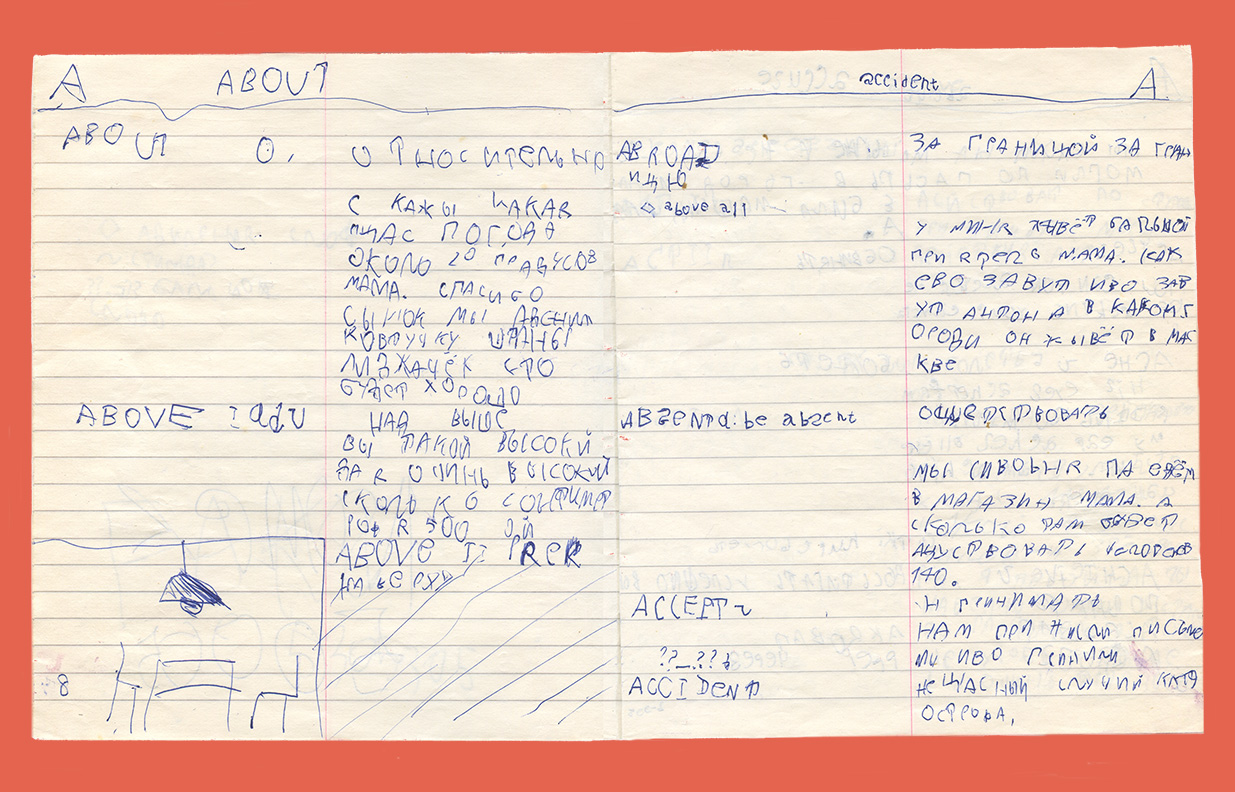 A ABOUT
ABOUT О, ОТНОСИТЕЛЬНО
С КАЖЫ КАКАЯ
ПОГОДА
ОКОЛО 20 ГРАДУСОВ
МАМА. СПАСИБО
СЫНОК МЫ
КОВТУЧКУ
БУДЕТ ХОРОШО
ABOVE I adv НАД ВЫШЕ
ВЫ ТАКОЙ ВЫСОКИЙ
ДА Я ОЧИНЬ ВЫСОКИЙ
СКОЛЬКО СОНТИМТ
РОФ Я 500 ОЙ
ABOVE II PREP
НАВЕРХУ
8
accident A
ABROAD ЗА ГРАНИЦОЙ ЗА ГРАН
ИЦЮ
◇ above all
У МИНЯ ЖЫВЁТ БАЛЬШОЙ
ПРИЯТЕЛЬ МАМА. КАК
ЕВО ЗАВУТ ИВО ЗАВ
УТ АНТОНА В КАКОМ Г
ОРОДИ ОН ЖЫВЁТ В МАС
КВЕ
ABSENTA: be absent ОЦУТСТВОВАТЬ
МЫ СИВОДНЯ ПАЕДЕМ
В МАГАЗИН МАМА. А
СКОЛЬКО ТАМ БУДЕТ
АЦУСТВОВАТЬ ЧЕЛОВЕК
140.
ACCEPT v ПРИНИМАТЬ
НАМ ПРИНИСЛИ ПИСЬМО
МЫ ИВО ПРИНИЛИ
??_??
ACCIDENT НЕЩАСНЫЙ СЛУЧИЙ
ОСТРОВА.